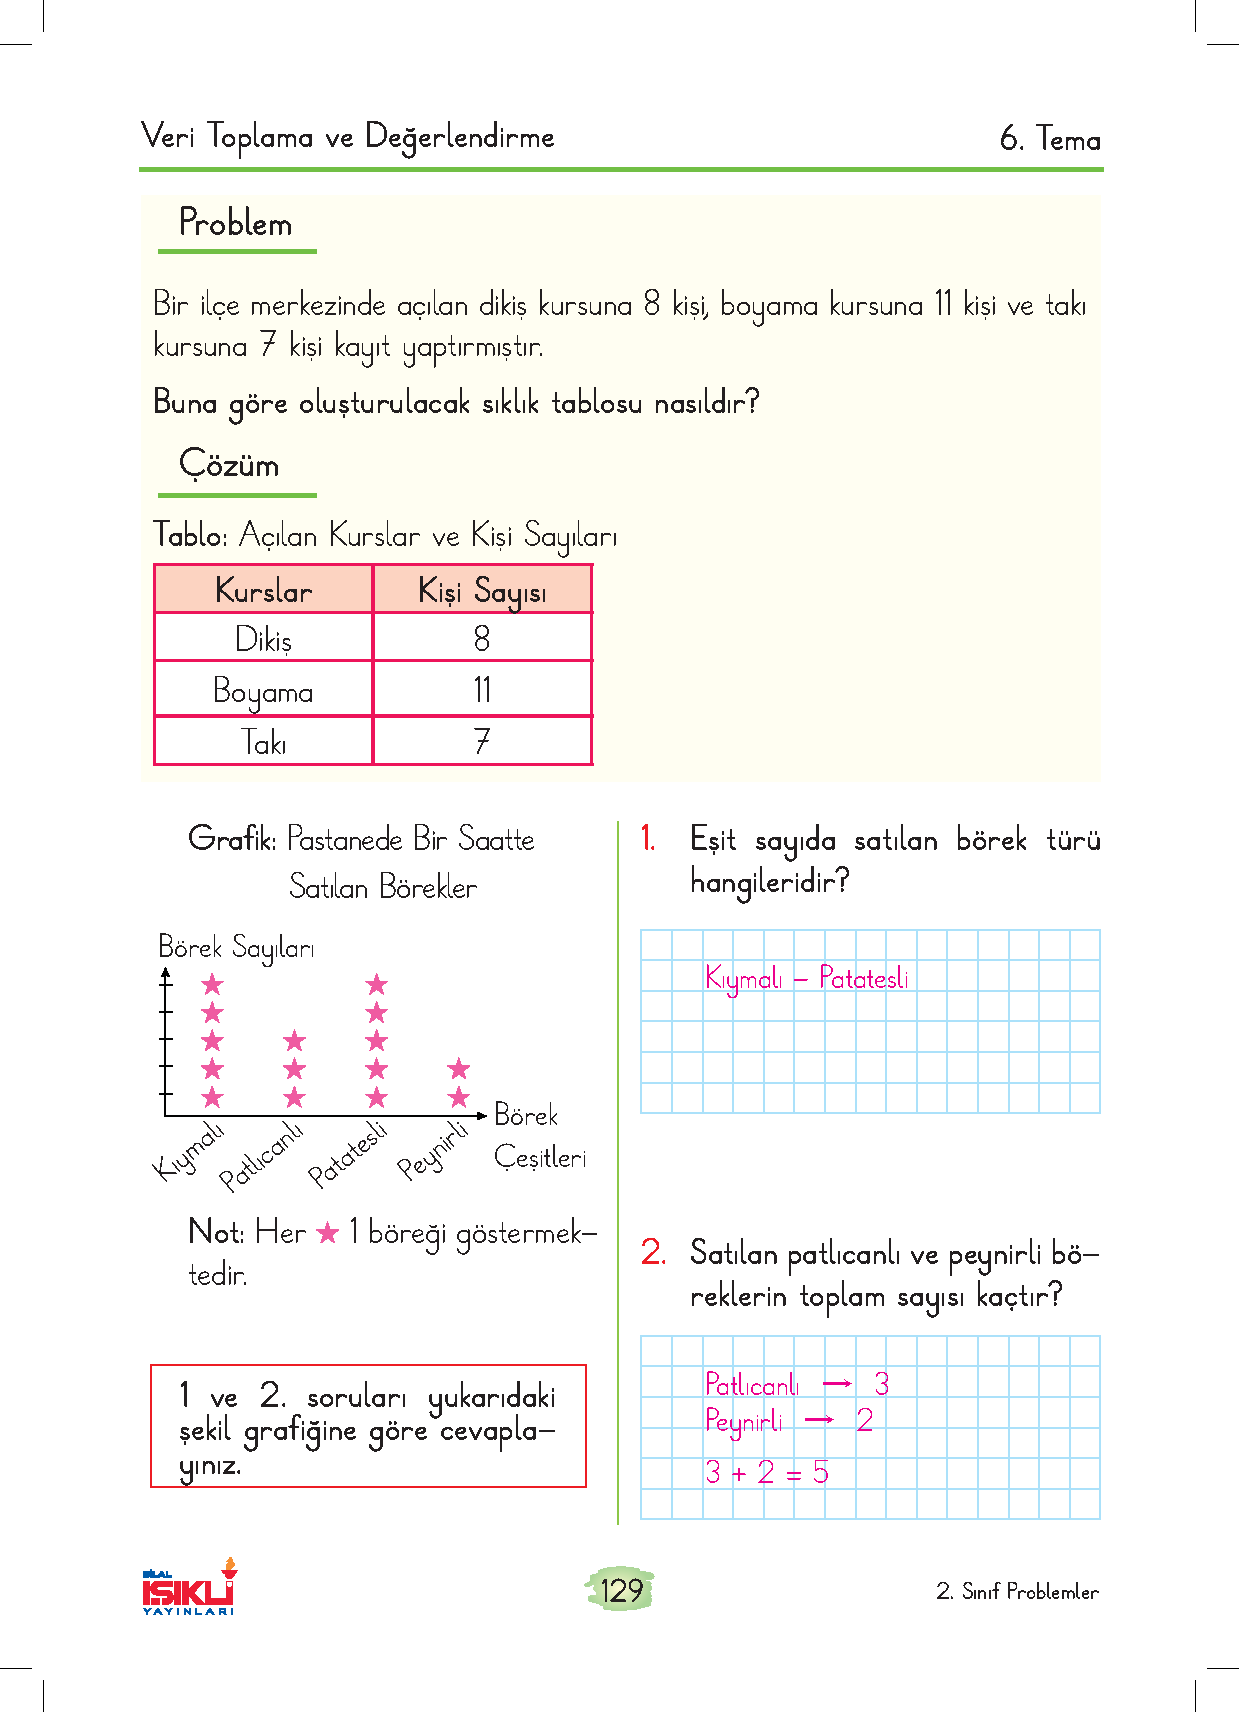 Veri Toplama ve Değerlendirme 6. Tema
Problem
Bir ilçe merkezinde açılan dikiş kursuna 8 kişi, boyama kursuna 11 kişi ve takı
kursuna 7 kişi kayıt yaptırmıştır.
Buna göre oluşturulacak sıklık tablosu nasıldır?
Çözüm
Tablo: Açılan Kurslar ve Kişi Sayıları
Kurslar Kişi Sayısı
Dikiş 8
Boyama 11
Takı 7
Grafik: Pastanede Bir Saatte
Satılan Börekler
Börek Sayıları
Börek
Çeşitleri
Kıymalı Patlıcanlı Patatesli Peynirli
Not: Her ★ 1 böreği göstermek-
tedir.
1 ve 2. soruları yukarıdaki
şekil grafiğine göre cevapla-
yınız.
1. Eşit sayıda satılan börek türü
hangileridir?
Kıymalı - Patatesli
2. Satılan patlıcanlı ve peynirli bö-
reklerin toplam sayısı kaçtır?
Patlıcanlı → 3
Peynirli → 2
3 + 2 = 5
BİLAL
IŞIKLI
YAYINLARI
129
2. Sınıf Problemler